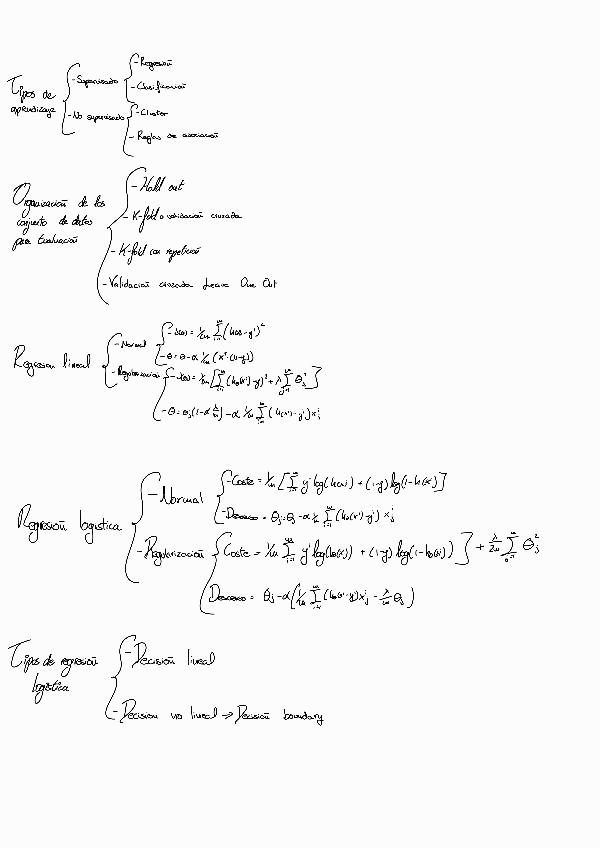 Tipos de
aprendizaje
- Supervisado
- Regresión
- Clasificación
- No supervisado
- Cluster
- Reglas de asociación
Organización de los
conjunto de datos
para Evaluación
- Hold out
- K-fold o validación cruzada
- K-fold con repetición
- Validación cruzada Leave One Out
Regresion lineal
- Normal
- J(θ) = 1/2m Σ (h(x) - y^i)^2
- θ = θ - α 1/m (x^T · (h-y))
- Regularización
- J(θ) = 1/2m [Σ (h_θ(x^i) - y)^2 + λ Σ θ_j^2]
- θ = θ_j (1 - α λ/m) - α 1/m Σ (h(x^i) - y^i) x_j^i
Regresión logística
- Normal
- Coste = 1/m [Σ y^i log(h(x)) + (1-y) log(1-h(x))]
- Descenso = θ_j = θ_j - α 1/m Σ (h_θ(x^i) - y^i) x_j
- Regularización
Coste = 1/m Σ y^i log(h_θ(x)) + (1-y) log(1-h_θ(x))] + λ/2m Σ θ_j^2
Descenso = θ_j - α (1/m Σ (h_θ(x^i) - y) x_j^i - λ/m θ_j)
Tipos de regresión
logística
- Decisión lineal
- Decision no lineal → Decisión boundary